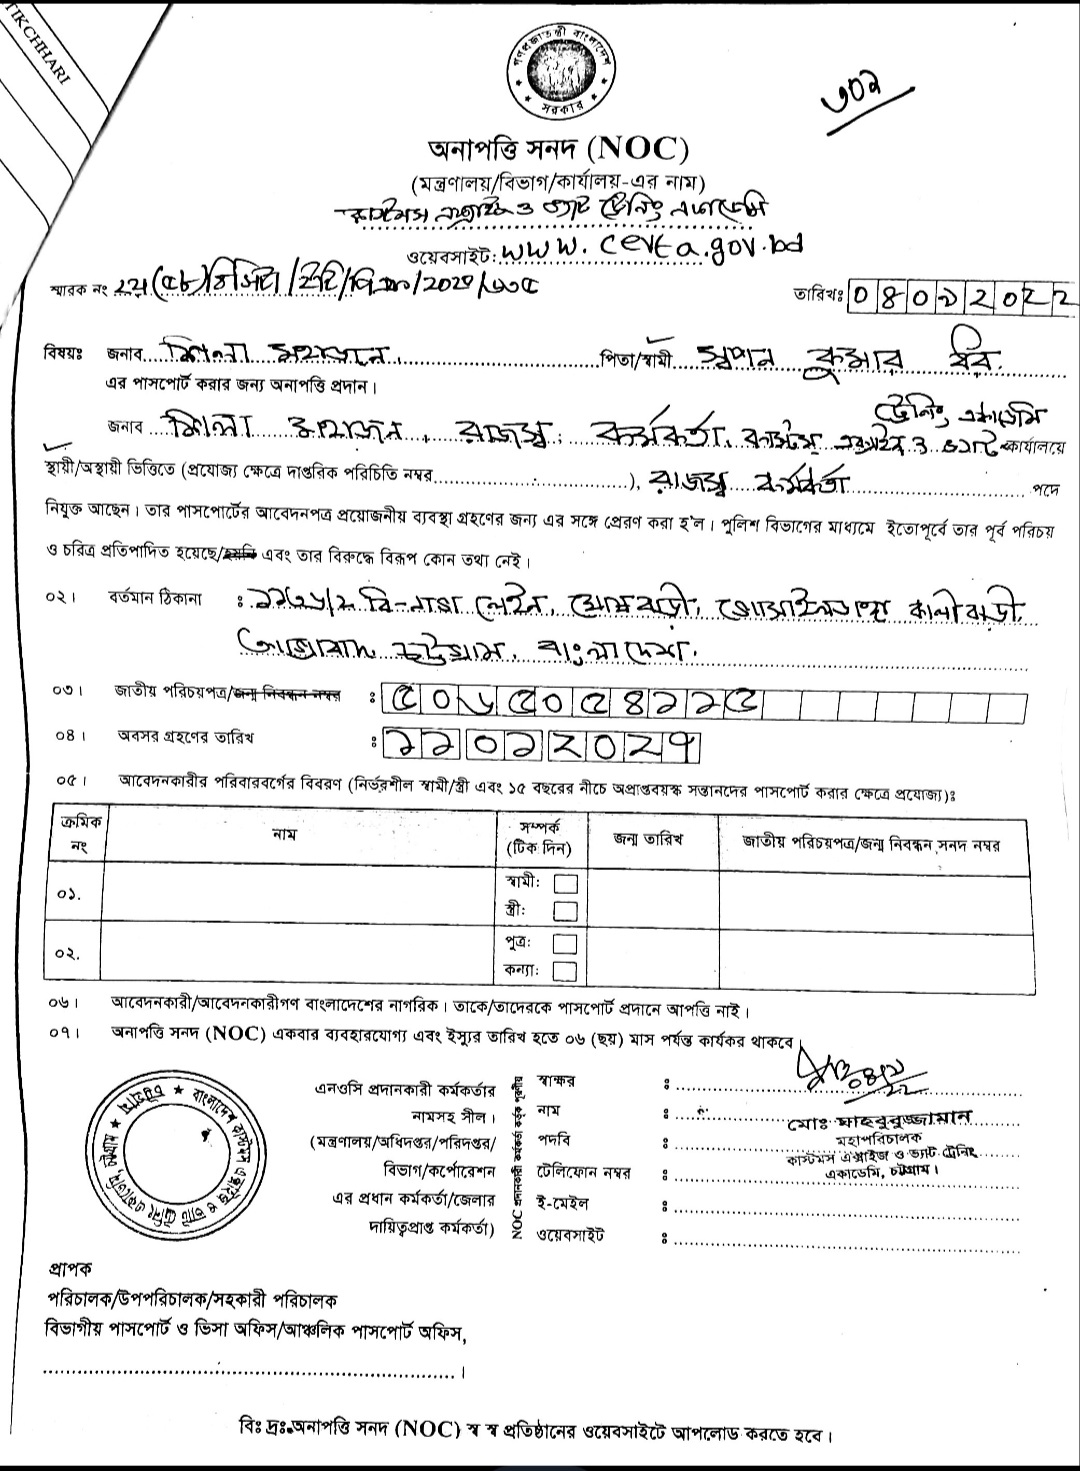 TIKCHHARI
গণপ্রজাতন্ত্রী বাংলাদেশ
সরকার
৩০৯
অনাপত্তি সনদ (NOC)
(মন্ত্রণালয়/বিভাগ/কার্যালয়-এর নাম)
কাস্টমস এক্সাইজ ও ভ্যাট ট্রেনিং একাডেমি
ওয়েবসাইট: www.cevta.gov.bd
স্মারক নং
তারিখঃ 04092022
বিষয়ঃ জনাব শিলা মহাজন পিতা/স্বামী স্বপন কুমার ধর
এর পাসপোর্ট করার জন্য অনাপত্তি প্রদান।
জনাব শিলা মহাজন, রাজস্ব কর্মকর্তা, কাস্টমস এক্সাইজ ও ভ্যাট ট্রেনিং একাডেমি কার্যালয়ে
স্থায়ী/অস্থায়ী ভিত্তিতে (প্রযোজ্য ক্ষেত্রে দাপ্তরিক পরিচিতি নম্বর), রাজস্ব কর্মকর্তা পদে
নিযুক্ত আছেন। তার পাসপোর্টের আবেদনপত্র প্রয়োজনীয় ব্যবস্থা গ্রহণের জন্য এর সঙ্গে প্রেরণ করা হ'ল। পুলিশ বিভাগের মাধ্যমে ইতোপূর্বে তার পূর্ব পরিচয়
ও চরিত্র প্রতিপাদিত হয়েছে/হয়নি এবং তার বিরুদ্ধে বিরূপ কোন তথ্য নেই।
০২। বর্তমান ঠিকানা : লেইন, গোসাইলডাঙ্গা কালীবাড়ী,
চট্টগ্রাম, বাংলাদেশ।
০৩। জাতীয় পরিচয়পত্র/জন্ম নিবন্ধন নম্বর : ৫০৬৫০৫৪২২৫
০৪। অবসর গ্রহণের তারিখ :
০৫। আবেদনকারীর পরিবারবর্গের বিবরণ (নির্ভরশীল স্বামী/স্ত্রী এবং ১৫ বছরের নীচে অপ্রাপ্তবয়স্ক সন্তানদের পাসপোর্ট করার ক্ষেত্রে প্রযোজ্য)ঃ
ক্রমিক নং নাম সম্পর্ক (টিক দিন) জন্ম তারিখ জাতীয় পরিচয়পত্র/জন্ম নিবন্ধন সনদ নম্বর
০১. স্বামী:
স্ত্রী:
০২. পুত্র:
কন্যা:
০৬। আবেদনকারী/আবেদনকারীগণ বাংলাদেশের নাগরিক। তাকে/তাদেরকে পাসপোর্ট প্রদানে আপত্তি নাই।
০৭। অনাপত্তি সনদ (NOC) একবার ব্যবহারযোগ্য এবং ইস্যুর তারিখ হতে ০৬ (ছয়) মাস পর্যন্ত কার্যকর থাকবে।
এনওসি প্রদানকারী কর্মকর্তার
নামসহ সীল।
(মন্ত্রণালয়/অধিদপ্তর/পরিদপ্তর/
বিভাগ/কর্পোরেশন
এর প্রধান কর্মকর্তা/জেলার
দায়িত্বপ্রাপ্ত কর্মকর্তা)
NOC প্রদানকারী কর্মকর্তা কর্তৃক পূরণীয়
স্বাক্ষর :
নাম : মোঃ মাহবুবুজ্জামান
পদবি : মহাপরিচালক
কাস্টমস এক্সাইজ ও ভ্যাট ট্রেনিং
একাডেমি, চট্টগ্রাম।
টেলিফোন নম্বর :
ই-মেইল :
ওয়েবসাইট :
প্রাপক
পরিচালক/উপপরিচালক/সহকারী পরিচালক
বিভাগীয় পাসপোর্ট ও ভিসা অফিস/আঞ্চলিক পাসপোর্ট অফিস,
বিঃ দ্রঃ অনাপত্তি সনদ (NOC) স্ব স্ব প্রতিষ্ঠানের ওয়েবসাইটে আপলোড করতে হবে।